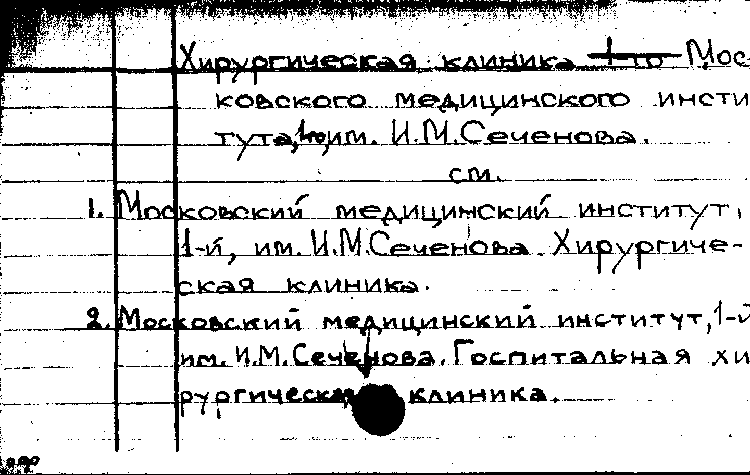 Хирургическая клиника 1-го Мос-
ковского медицинского инсти
тута, 1го, им. И.М.Сеченова.
см.
1. Московский медицинский институт,
1-й, им. И.М.Сеченова. Хирургиче-
ская клиника.
2. Московский медицинский институт, 1-й
им. И.М.Сеченова. Госпитальная хи
рургическая клиника.